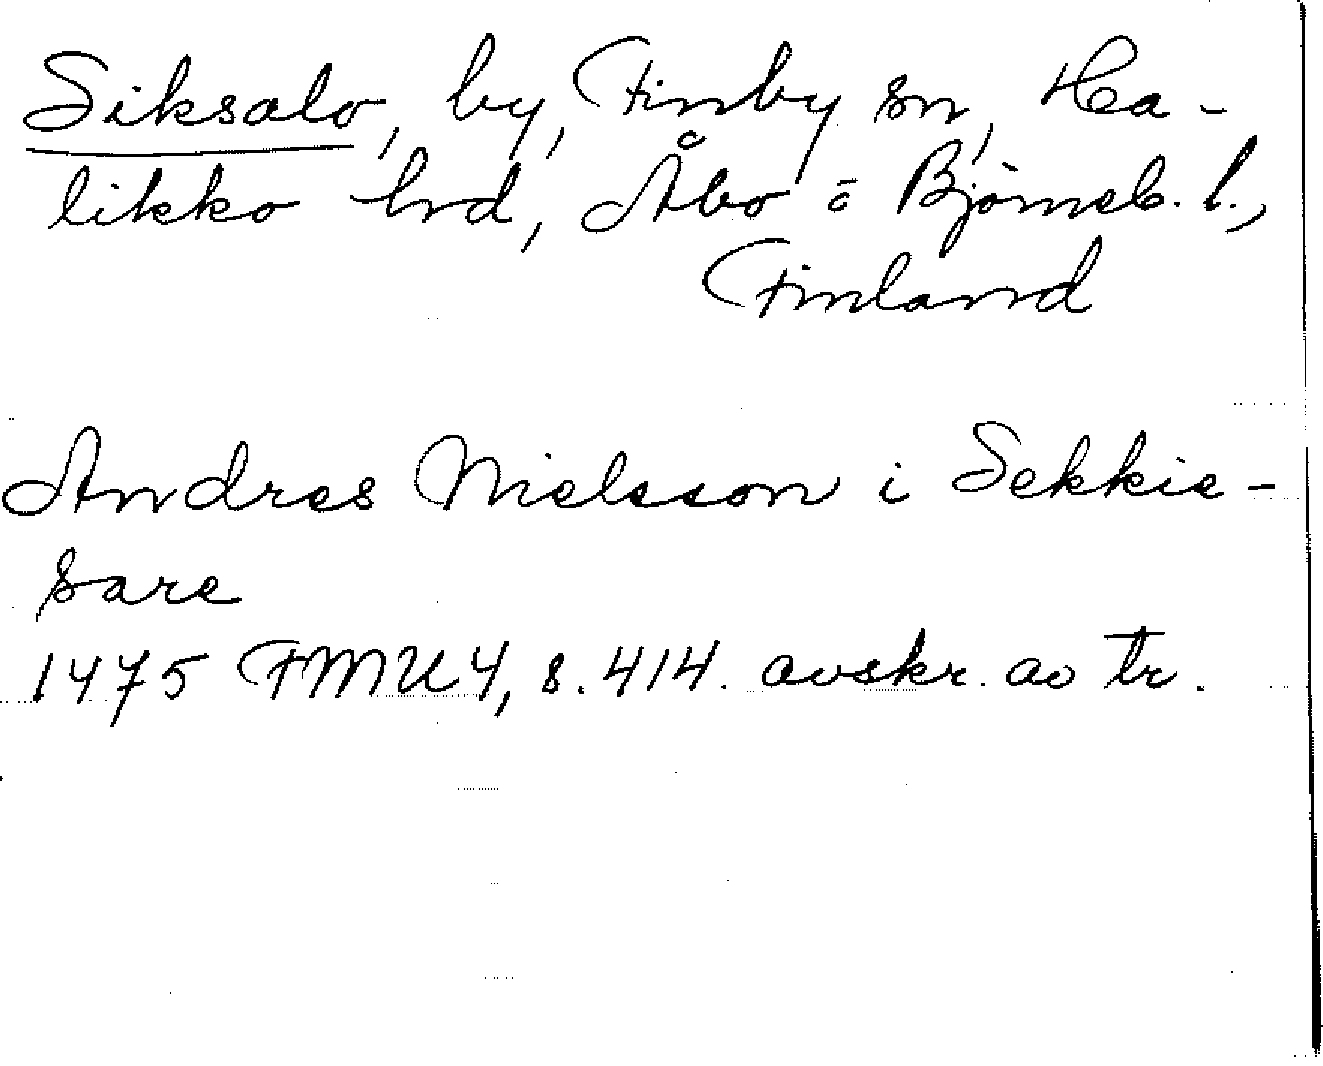 Siksalo, by, Finby sn, Ha-
likko hrd, Åbo o Björneb. l.,
Finland
Andres Nielsson i Sekkie-
sare
1475 FMU 4, s. 414. avskr. av tr.